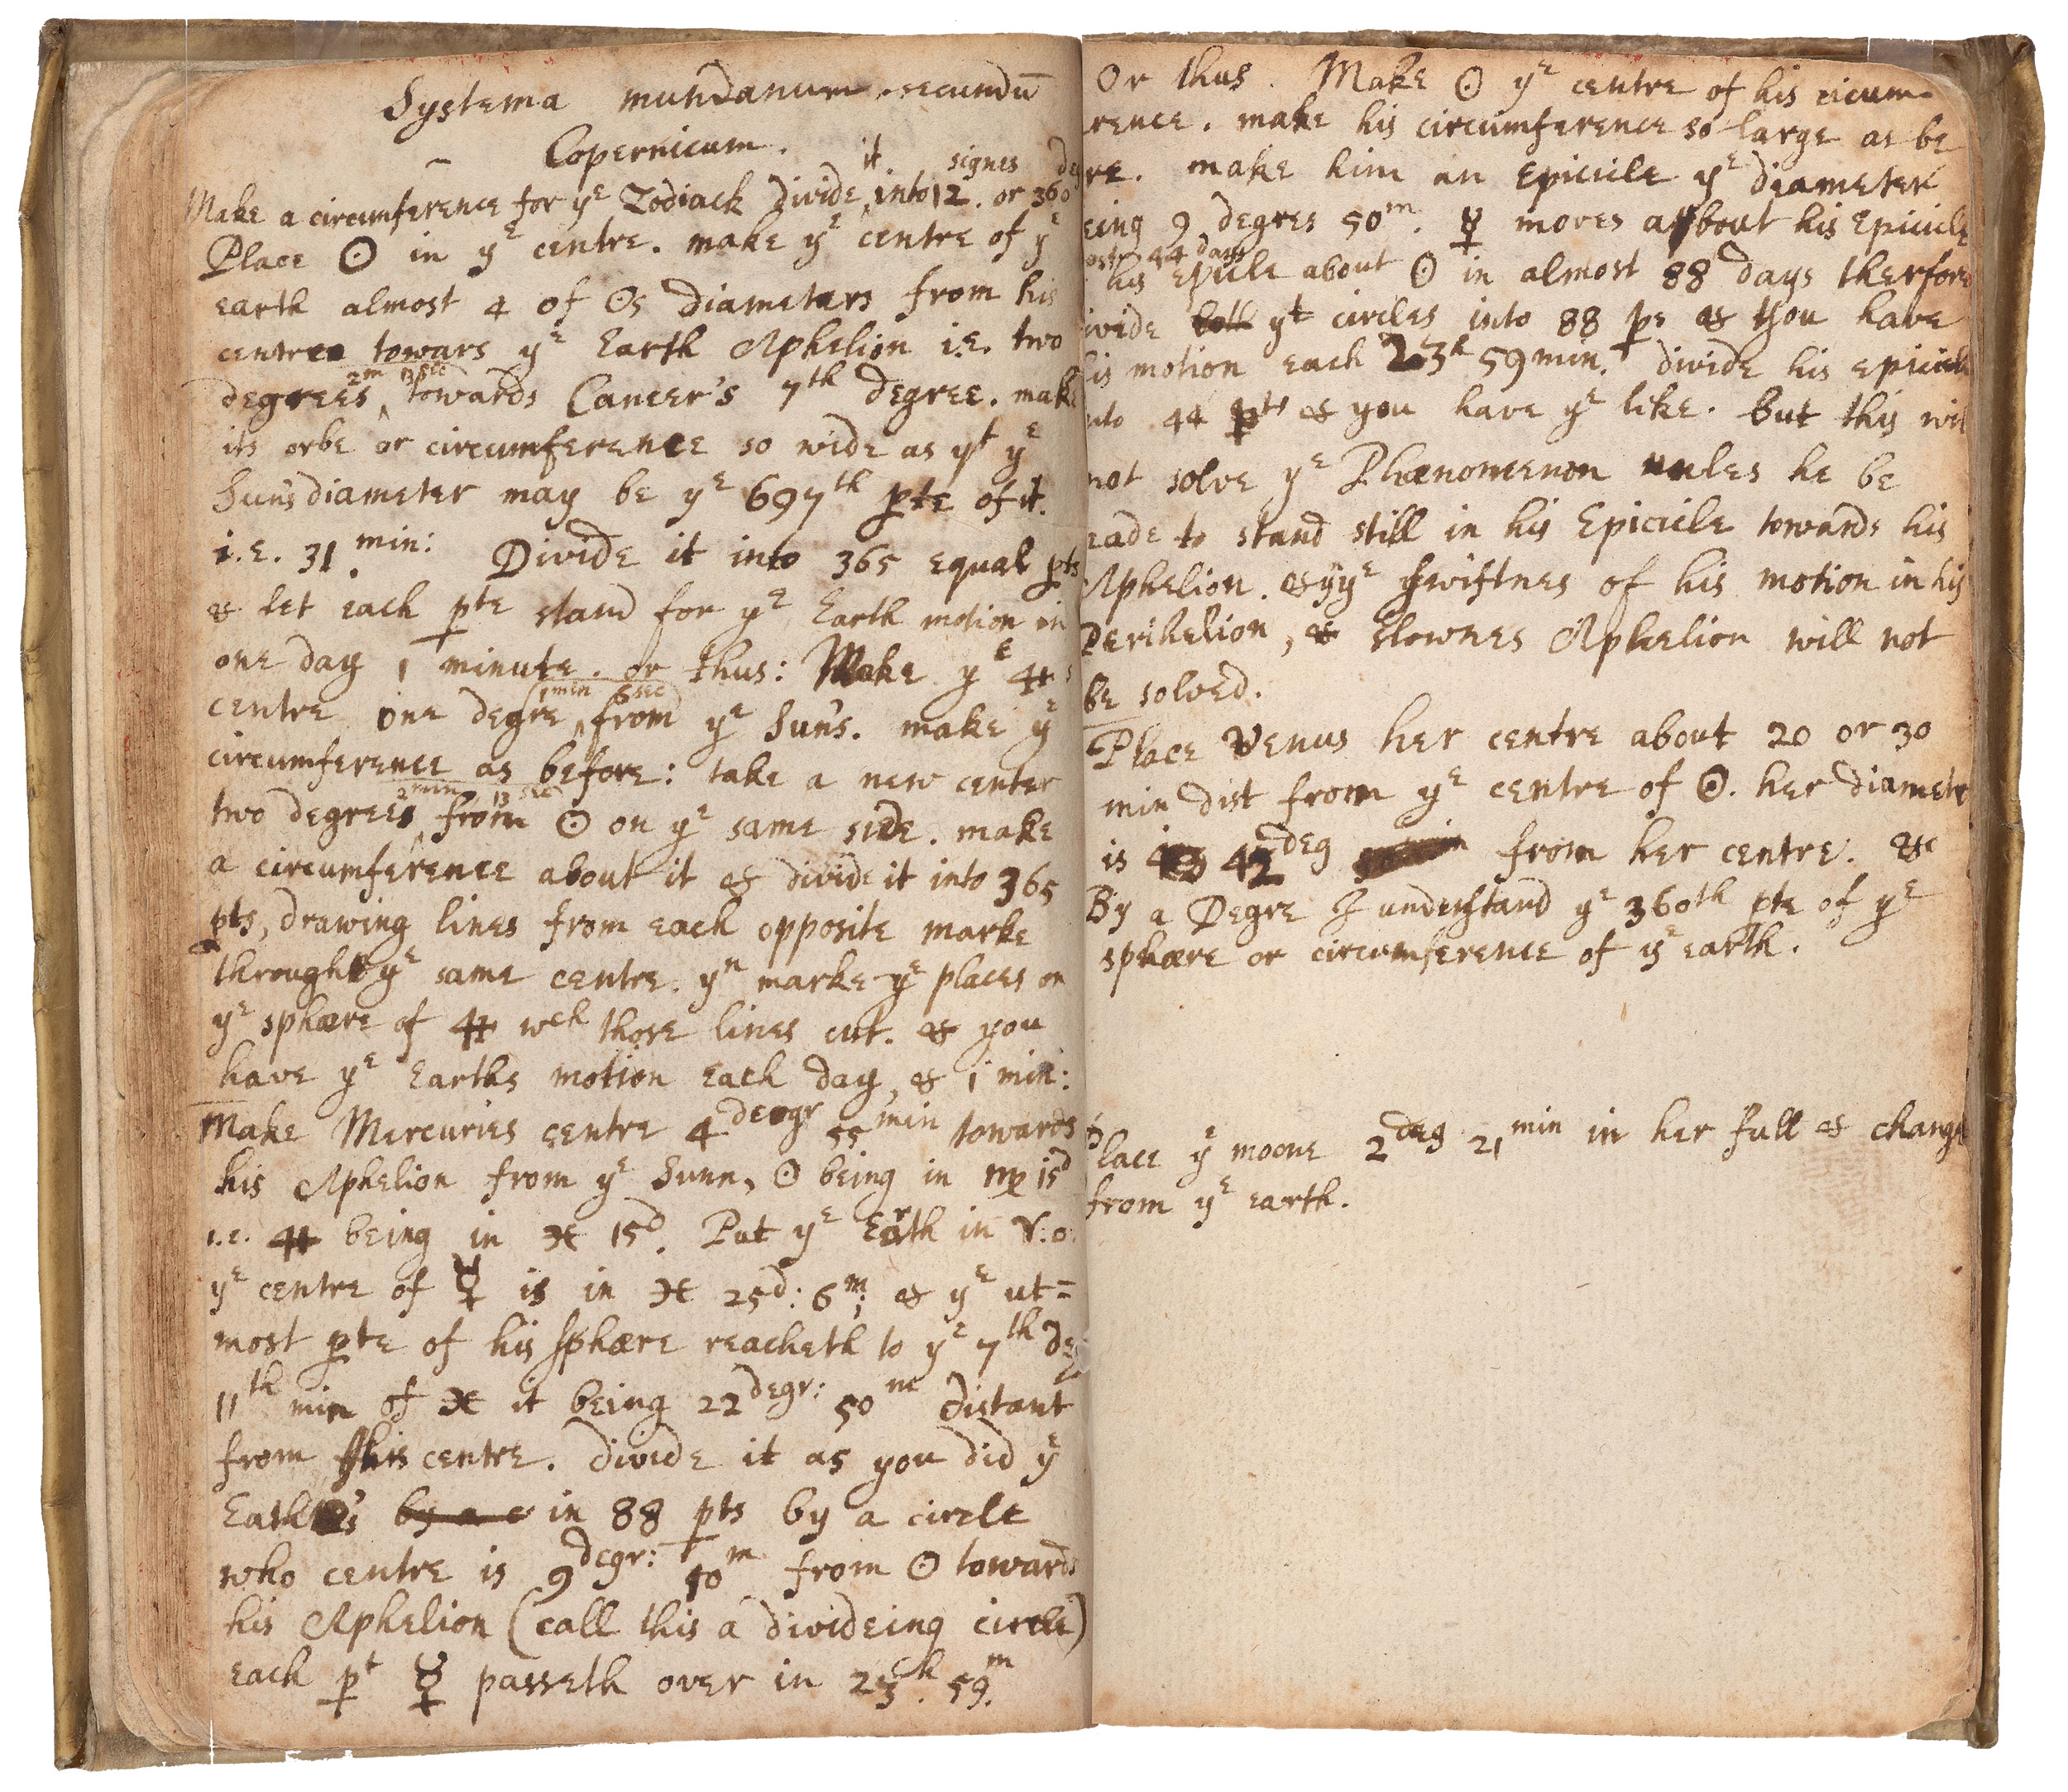 Systema mundanum secundū
Copernicum.
it signes deg
Make a circumference for yᵉ Zodiack divide into 12. or 360
Place ☉ in yᵉ centre. make yᵉ centre of yᵉ
earth almost 4 of ☉s diameters from his
centre towars yᵉ Earth Aphelion i.e. two
2ᵐ 13sec
degrees towards Cancer's 7ᵗʰ degree. make
its orbe or circumference so wide as yᵗ yᵉ
Suns diameter may be yᵉ 697ᵗʰ pte of it.
i.e. 31 min: Divide it into 365 equal pts
& let each pte stand for yᵉ Earth motion in
one day 1 minute. or thus: Make yᵉ ♁s
1min 6sec
centre one degre from yᵉ Suns. make yᵉ
circumference as before: take a new center
2min 13sec
two degrees from ☉ on yᵉ same side. make
a circumference about it & divide it into 365
pts, drawing lines from each opposite marke
through yᵉ same centre. yⁿ marke yᵉ places on
yᵉ sphære of ♁ wᶜʰ those lines cut. & you
have yᵉ Earths motion each day, & 1 min:
Make Mercuries centre 4 degr 55 min towards
his Aphelion from yᵉ Sunn, ☉ being in ♍ 15ᵈ
i.e. ♁ being in ♓ 15ᵈ. Put yᵉ Earth in ♈: 0.
yᵉ centre of ☿ is in ♓ 25ᵈ: 6ᵐ; & yᵉ ut=
most pte of his sphære reacheth to yᵉ 7ᵗʰ deg
11ᵗʰ min of ♓ it being 22 degr: 50ᵐ distant
from his centre. divide it as you did yᵉ
Eath's by a c in 88 pts by a circle
who centre is 9 degr: 50ᵐ from ☉ towards
his Aphelion (call this a divideing circle)
each pᵗ ☿ passeth over in 23ʰ. 59ᵐ.
Or thus. Make ☉ yᵉ centre of his cicum-
rence. make his circumference so large as be
re. make him an Epicicle yᵉ diameter
eing 9 degres 50ᵐ. ☿ moves about his Epicicle
44 days
his Epicle about ☉ in almost 88 days therfore
ivide both yᵗ circles into 88 ps & thou have
is motion each 23ʰ 59 min. divide his epicicle
nto 44 pts & you have yᵉ like. but this wil
not solve yᵉ Phænomenon unles he be
made to stand still in his Epicicle towards his
Aphelion. & yᵉ swiftnes of his motion in his
Perihelion, & slownes Aphelion will not
be solved.
Place Venus her centre about 20 or 30
min dist from yᵉ centre of ☉. her diameter
is 42 deg from her centre. &c
By a Degre I understand yᵉ 360th pte of yᵉ
sphære or circumference of yᵉ earth.
Place yᵉ moone 2 deg 21 min in her full & change
from yᵉ earth.